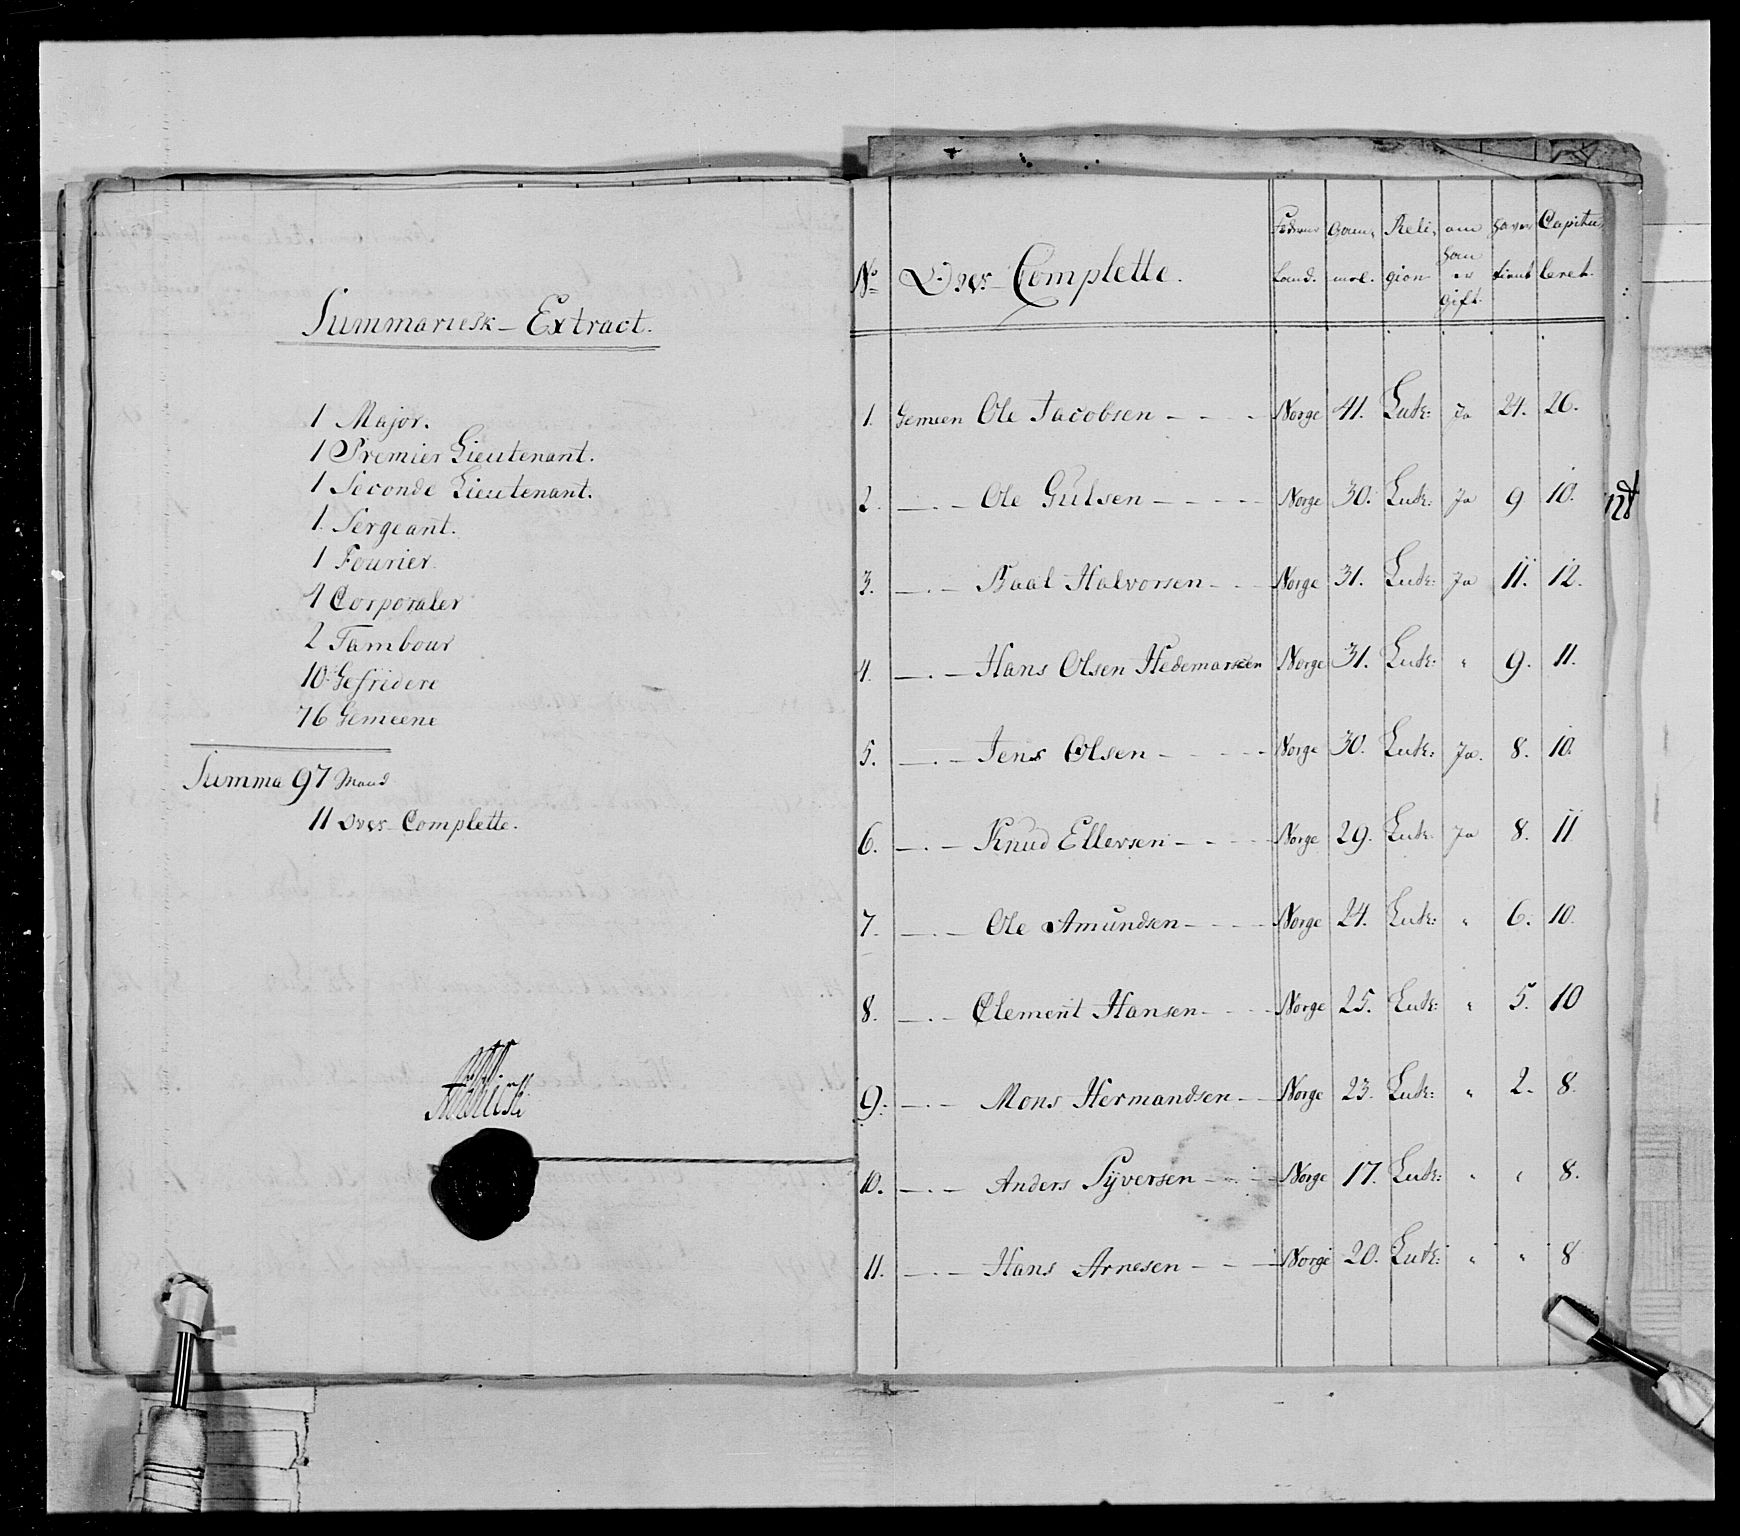 Summarisk – Extract.
1 Major.
1 Premier Lieutenant.
1 Seconde Lieutenant.
1. Sergeant.
1 Fourier.
4 Corporaler
2 Tambour
10 Gefridere
76 Gemeene
Summa 97 Mand
11 Over Complette.
No Over Complette. Fædrene Land. Gam, mel. Reli, gion om Han er Gift. Haver tient Capitu, leret.
1. Gemeen Ole Jacobsen – – – – Norge 41. Luth: Ja 24. 26.
2. —.— Ole Gulsen – – – – Norge 30. Luth: Ja 9 10.
3. —.— Paal Halvorsen – – Norge 31. Luth: Ja 11. 12.
4. —.— Hans Olsen Hedemarken Norge 31. Luth: " 9. 11.
5. —.— Jens Olsen – – – – Norge 30. Luth: Ja. 8. 10.
6. —.— Knud Ellersen – – – – Norge 29. Luth: Ja 8. 11
7. —.— Ole Amundsen – – – – Norge 24. Luth: " 6. 10.
8. —.— Clement Hansen – – – Norge 25. Luth: " 5. 10
9. —.— Mons Hermandsen – – Norge 23. Luth: " 2. 8.
10. —.— Anders Syversen – – – Norge 17. Luth: " " 8.
11. —.— Hans Arnesen – – – Norge 20. Luth: " " 8